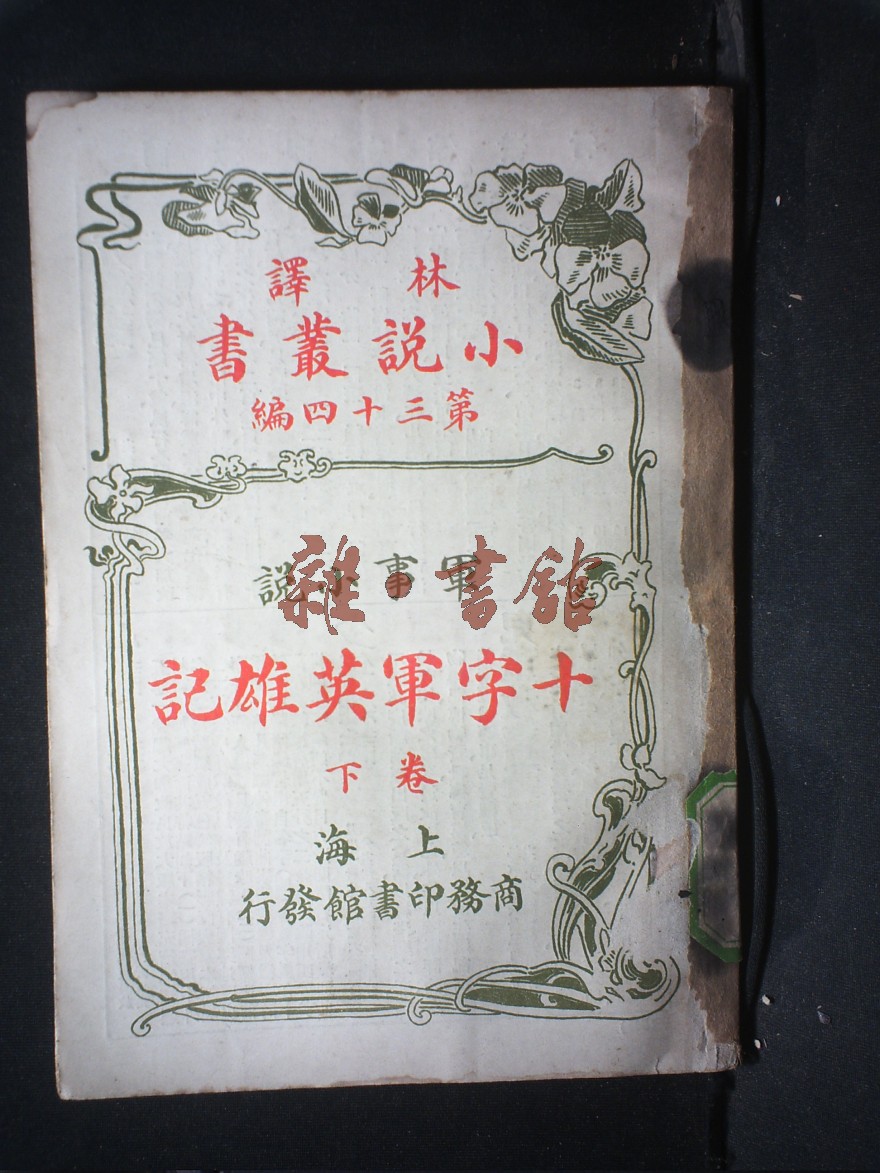 林譯
小説叢書
第三十四編
軍事小説
雜·書館
十字軍英雄記
卷下
上海
商務印書館發行